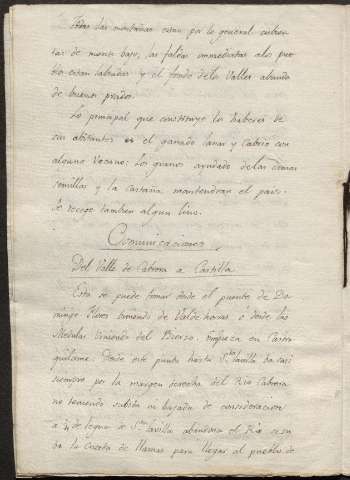 Todas las montañas estan por lo general cubier-
tas de monte bajo, las faldas inmediatas alos pue-
blos estan labradas y el fondo delos Valles abunda
de buenos prados.
Lo principal que constituye los haberes de
sus abitantes es el ganado lanar y Cabrio con
alguno Vacuno: Los granos ayudado delas demas
semillas y la Castaña mantendran el pais.
Se recoge tambien algun lino.
Comunicaciones.
Del Valle de Cabrera a Castilla.
Esta se puede tomar desde el puente de Do-
mingo Florez viniendo de Valdehorras o desde las
Medulas viniendo del Bierzo, empieza en Castro
quilame: Desde este punto hasta Sta lavilla va casi
siempre por la margen derecha del Rio Cabrera
no teniendo subida ni bajada de consideracion
a ¼ de legua de Sta lavilla abandona el Rio
la Cuesta de llamas para llegar al pueblo de